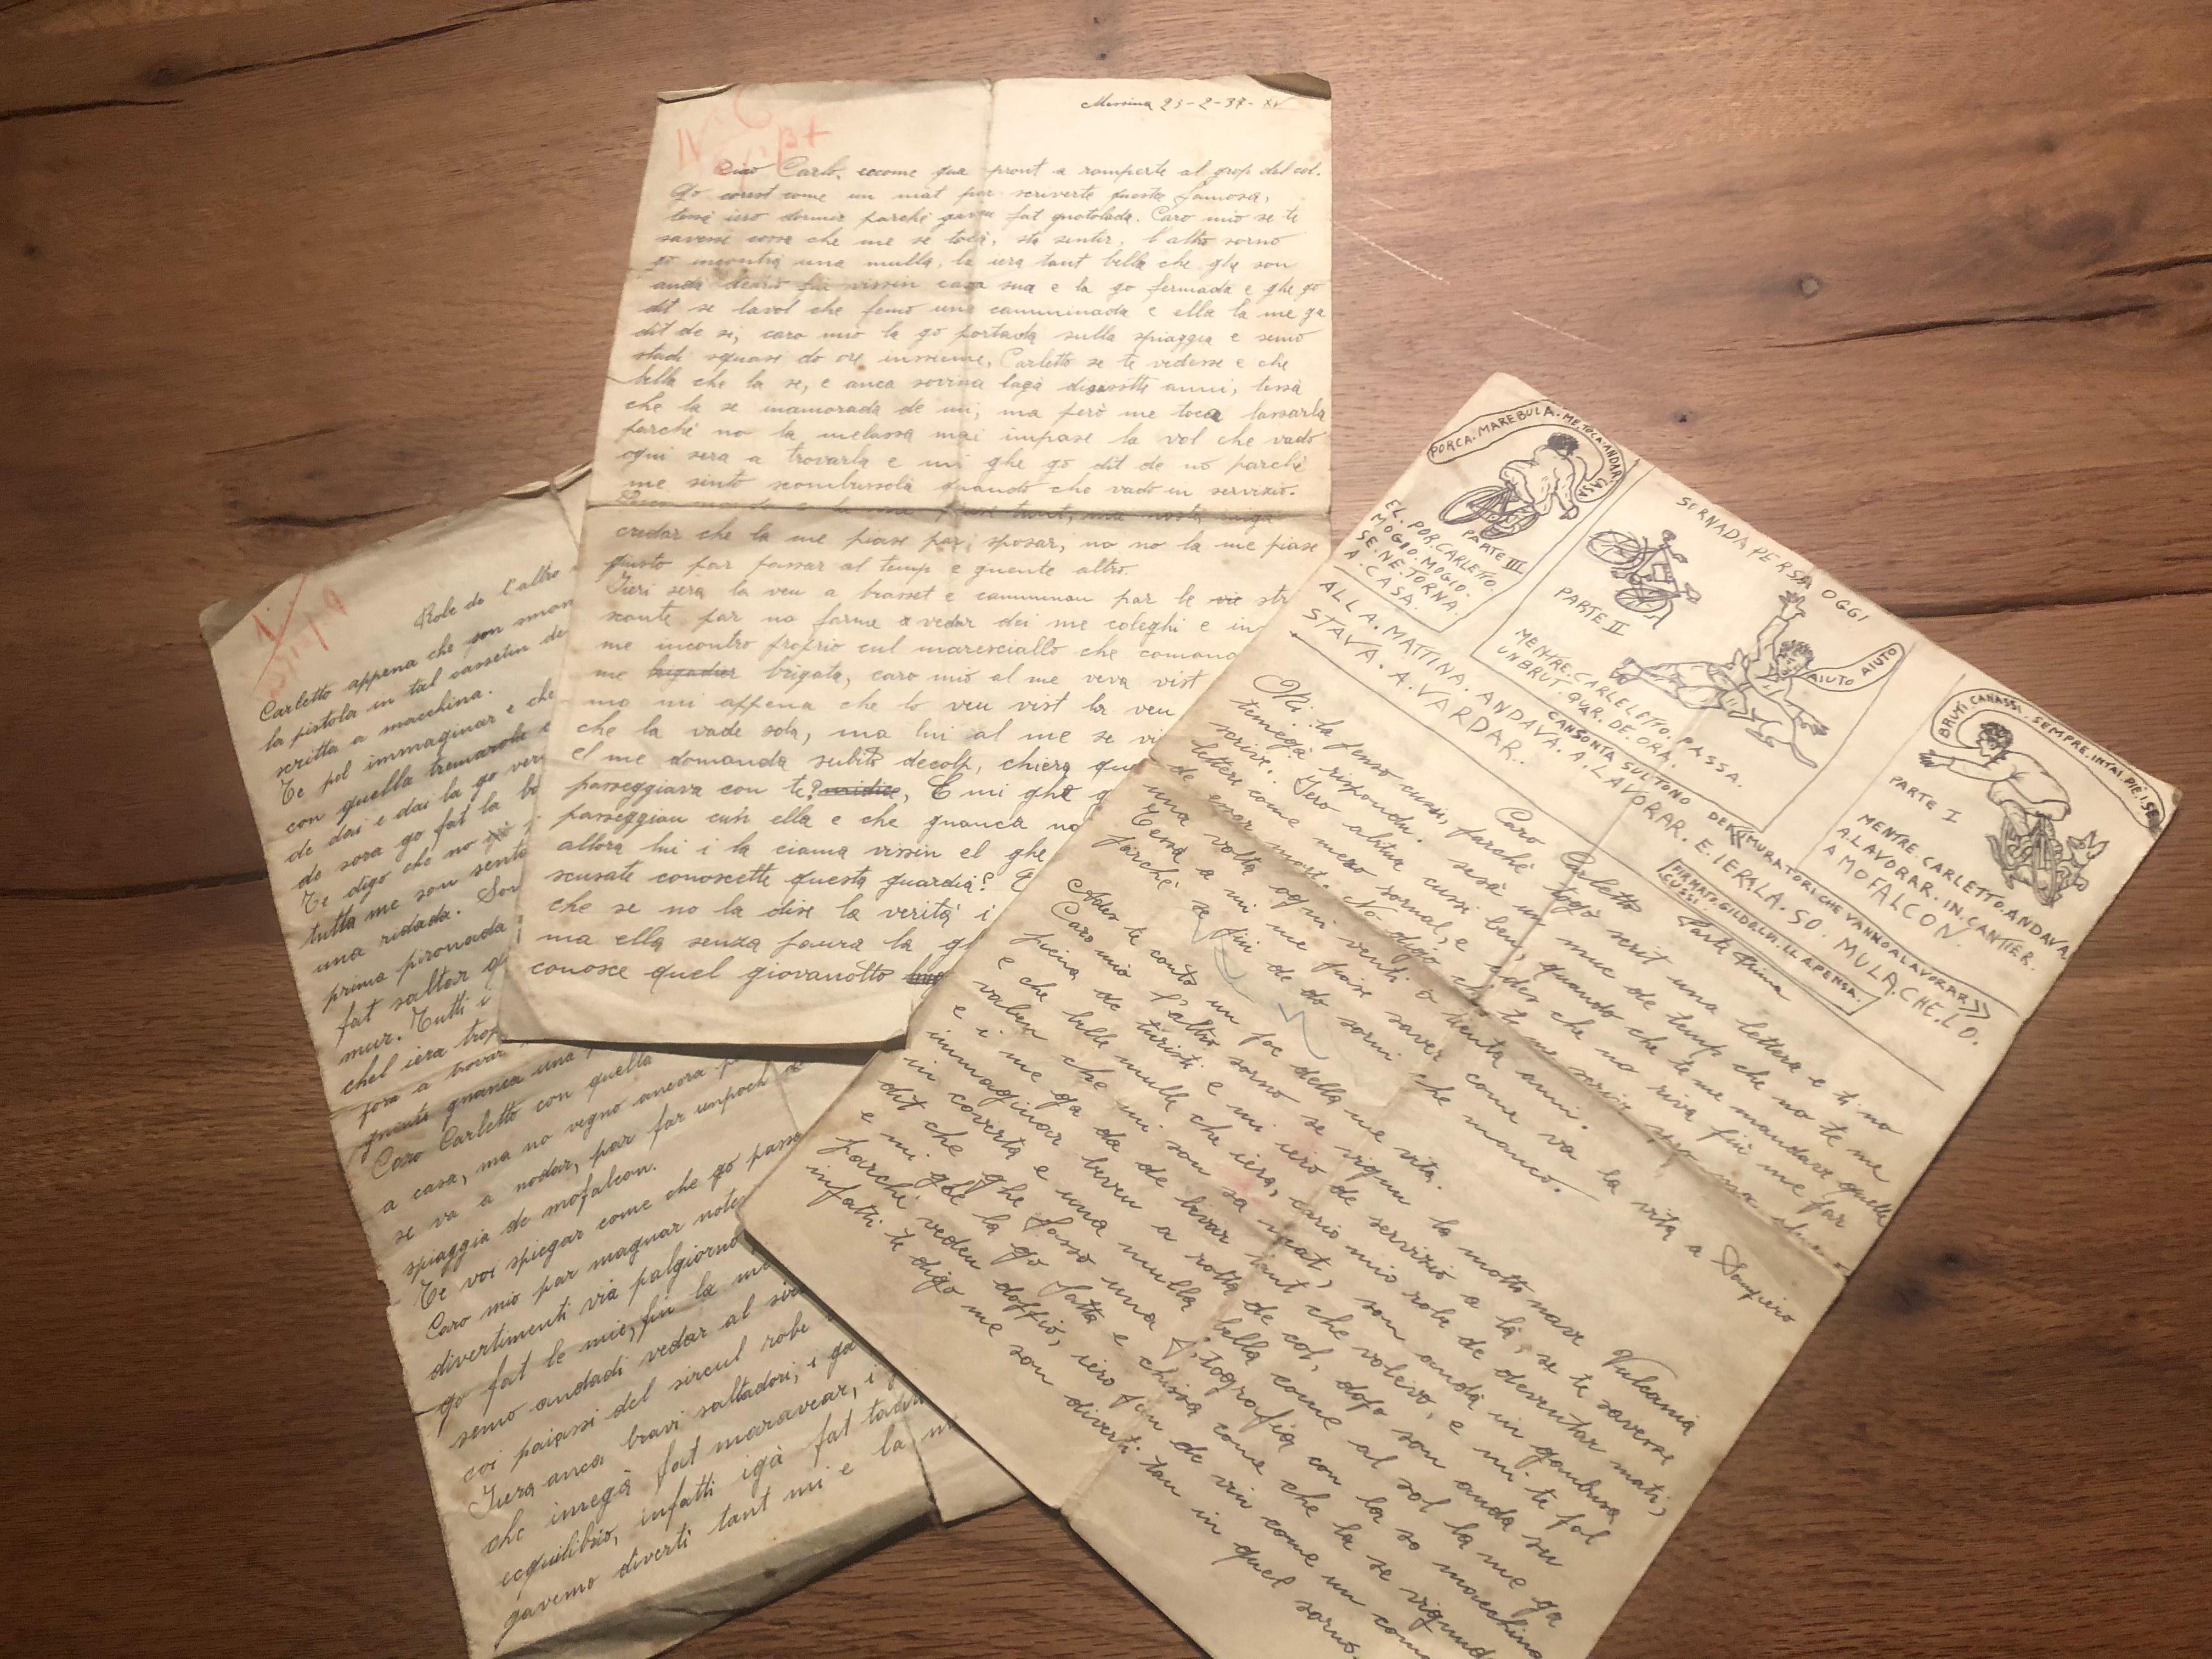 Messina 23-2-37-XV
Ciao Carlo, eccome qua pront a romperte al grop del col.
Go corest come un mat par scriverte questa famosa,
iero dormir parchè fat guotolada. Caro mio se te
savessi cossa che me se tocà, sta sentir, l'altro sorno
go incontrà una mulla, la iera tant bella che ghe son
andà deario fin vissin casa sua e la go fermada e ghe go
dit se la vol che femo una camminada e ella la me ga
dit de si, caro mio la go portada sulla spiaggia e semo
stadi squasi do ore insieme, Carletto se te vedesse e che
bella che la se, e anca sovina lagà disassette anni, tessà
che la se inamorada de mi, ma però me tocca lassarla
parchè no la me lassa mai in pase la vol che vado
ogni sera a trovarla e mi ghe go dit de no parchè
me sinto scombussolà quando che vado in servizio.
credar che la me piase par sposar, no no la me piase
giusto par passar al temp e guente altro.
Ieri sera la veu a brasset e camminau par le vie str
sconte par no farme vedar dei me coleghi e in
me incontro proprio cul maresciallo che comand
me brigadier brigata, caro mio al me veva vist
ma mi appena che lo veu vist la veu
che la vade sola, ma lui al me se vi
el me domanda subito decolp, chiera qu
passeggiava con te?, E mi ghe g
passeggiau cun ella e che guanca no
allora lui i la ciama vissin el ghe
scusate conoscette questa guardia? E
che se no la dise la verità i
ma ella senza paura la gh
conosce quel giovanotto
Robe de l'altro
Carletto appena che son smon
la pistola in tal cassetin de
scritta a macchina.
Te pol immaginar e che
con quella tremarola e
de dai e dai la go ver
do sora go fat la bo
Te digo che no
tutta me son senta
una ridada. Son
prima pironada
fat saltar qu
mur. Tutti i
chel iera trop
fora a trovar
guente guanca una
Caro Carletto con quella
a casa, ma no vegno ancora p
se va a nodar, par far un poch de
spiaggia de mofalcon.
Te voi spiegar come che go passà
Caro mio par magnar note
divertimenti via palgiorno
go fat le mie, fin la
semo andadi vedar al sir
coi paiassi del sircul robe
Iera anca bravi saltadori, i ga
che imegà fat maravear, i
equilibrio, infatti igà fat tadu
gavemo diverti tant mi e la m
SERNADA PERSA OGGI
PORCA. MAREBULA. ME. TOCA. ANDAR. CASA
PARTE III
EL. POR. CARLETTO.
MOGIO. MOGIO.
SE. NE. TORNA.
A. CASA.
AIUTO AIUTO
PARTE II
MENTRE. CARLELETTO. PASSA.
UN BRUT. QUAR. DE. ORA.
BRUTI. CANASSI. SEMPRE. INTAI. PIE. I SE
PARTE I
MENTRE. CARLETTO. ANDAVA
A LAVORAR. IN. CANTIER.
A MOFALCON.
CANSONTA SUL TONO DEI MURATORI. CHE VANNO A LAVORAR
ALLA. MATTINA. ANDAVA. A. LAVORAR. E. IERA. LA. SO. MULA. CHE. LO.
STAVA. A. VARDAR.
FIRMATO. GILDO. LUI. LA PENSA.
CUSSI.
Caro Carletto
Parte Prima
Mi la penso cussi, parchè togo scrit una lettera e ti no
temegà rispondu. sesà un muc de temp che no te me
scrive. Iero abitua cussi ben, quando che te me mandave quelle
lettere come mezo sornal, e edes che no riva fin me par
de essar mort. No digo che te me scrivi
una volta ogni venti o trenta anni.
Tessà a mi me piase saver come va la vita a Sanpiero
parchè se fin de do sorni che manco.
Ades te conto un poc della me vita.
Caro mio l'altro sorno se vignu la motto nave Vulcania
piena de turisti e mi iero de servizio a là, se te savesse
e che belle mulle che iera, cario mio robe de deventar mati,
valeu che mi son sa mat, son andà in gambusa
e i me ga da de bevar tant che volevo, e mi te pol
immaginar beveu a rotta de col, dopo son andà su
in coverta e una mulla bella come al sol la me ga
dit che ghe fasso una fotografia con la so macchina
e mi ghe la go fatta e chissà come che la se vignuda
parchè vedeu doppio, iero pien de vin come un
infatti te digo me son divertì tan in quel sorno.